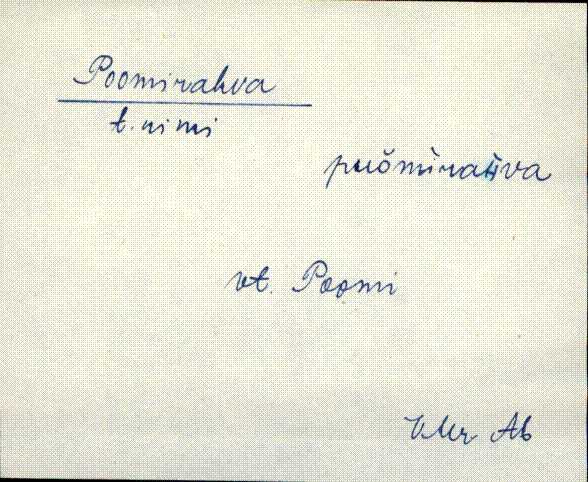 Poomirahva
t. nimi
puŏmìraʜva
vt. Poomi
VMr Ab